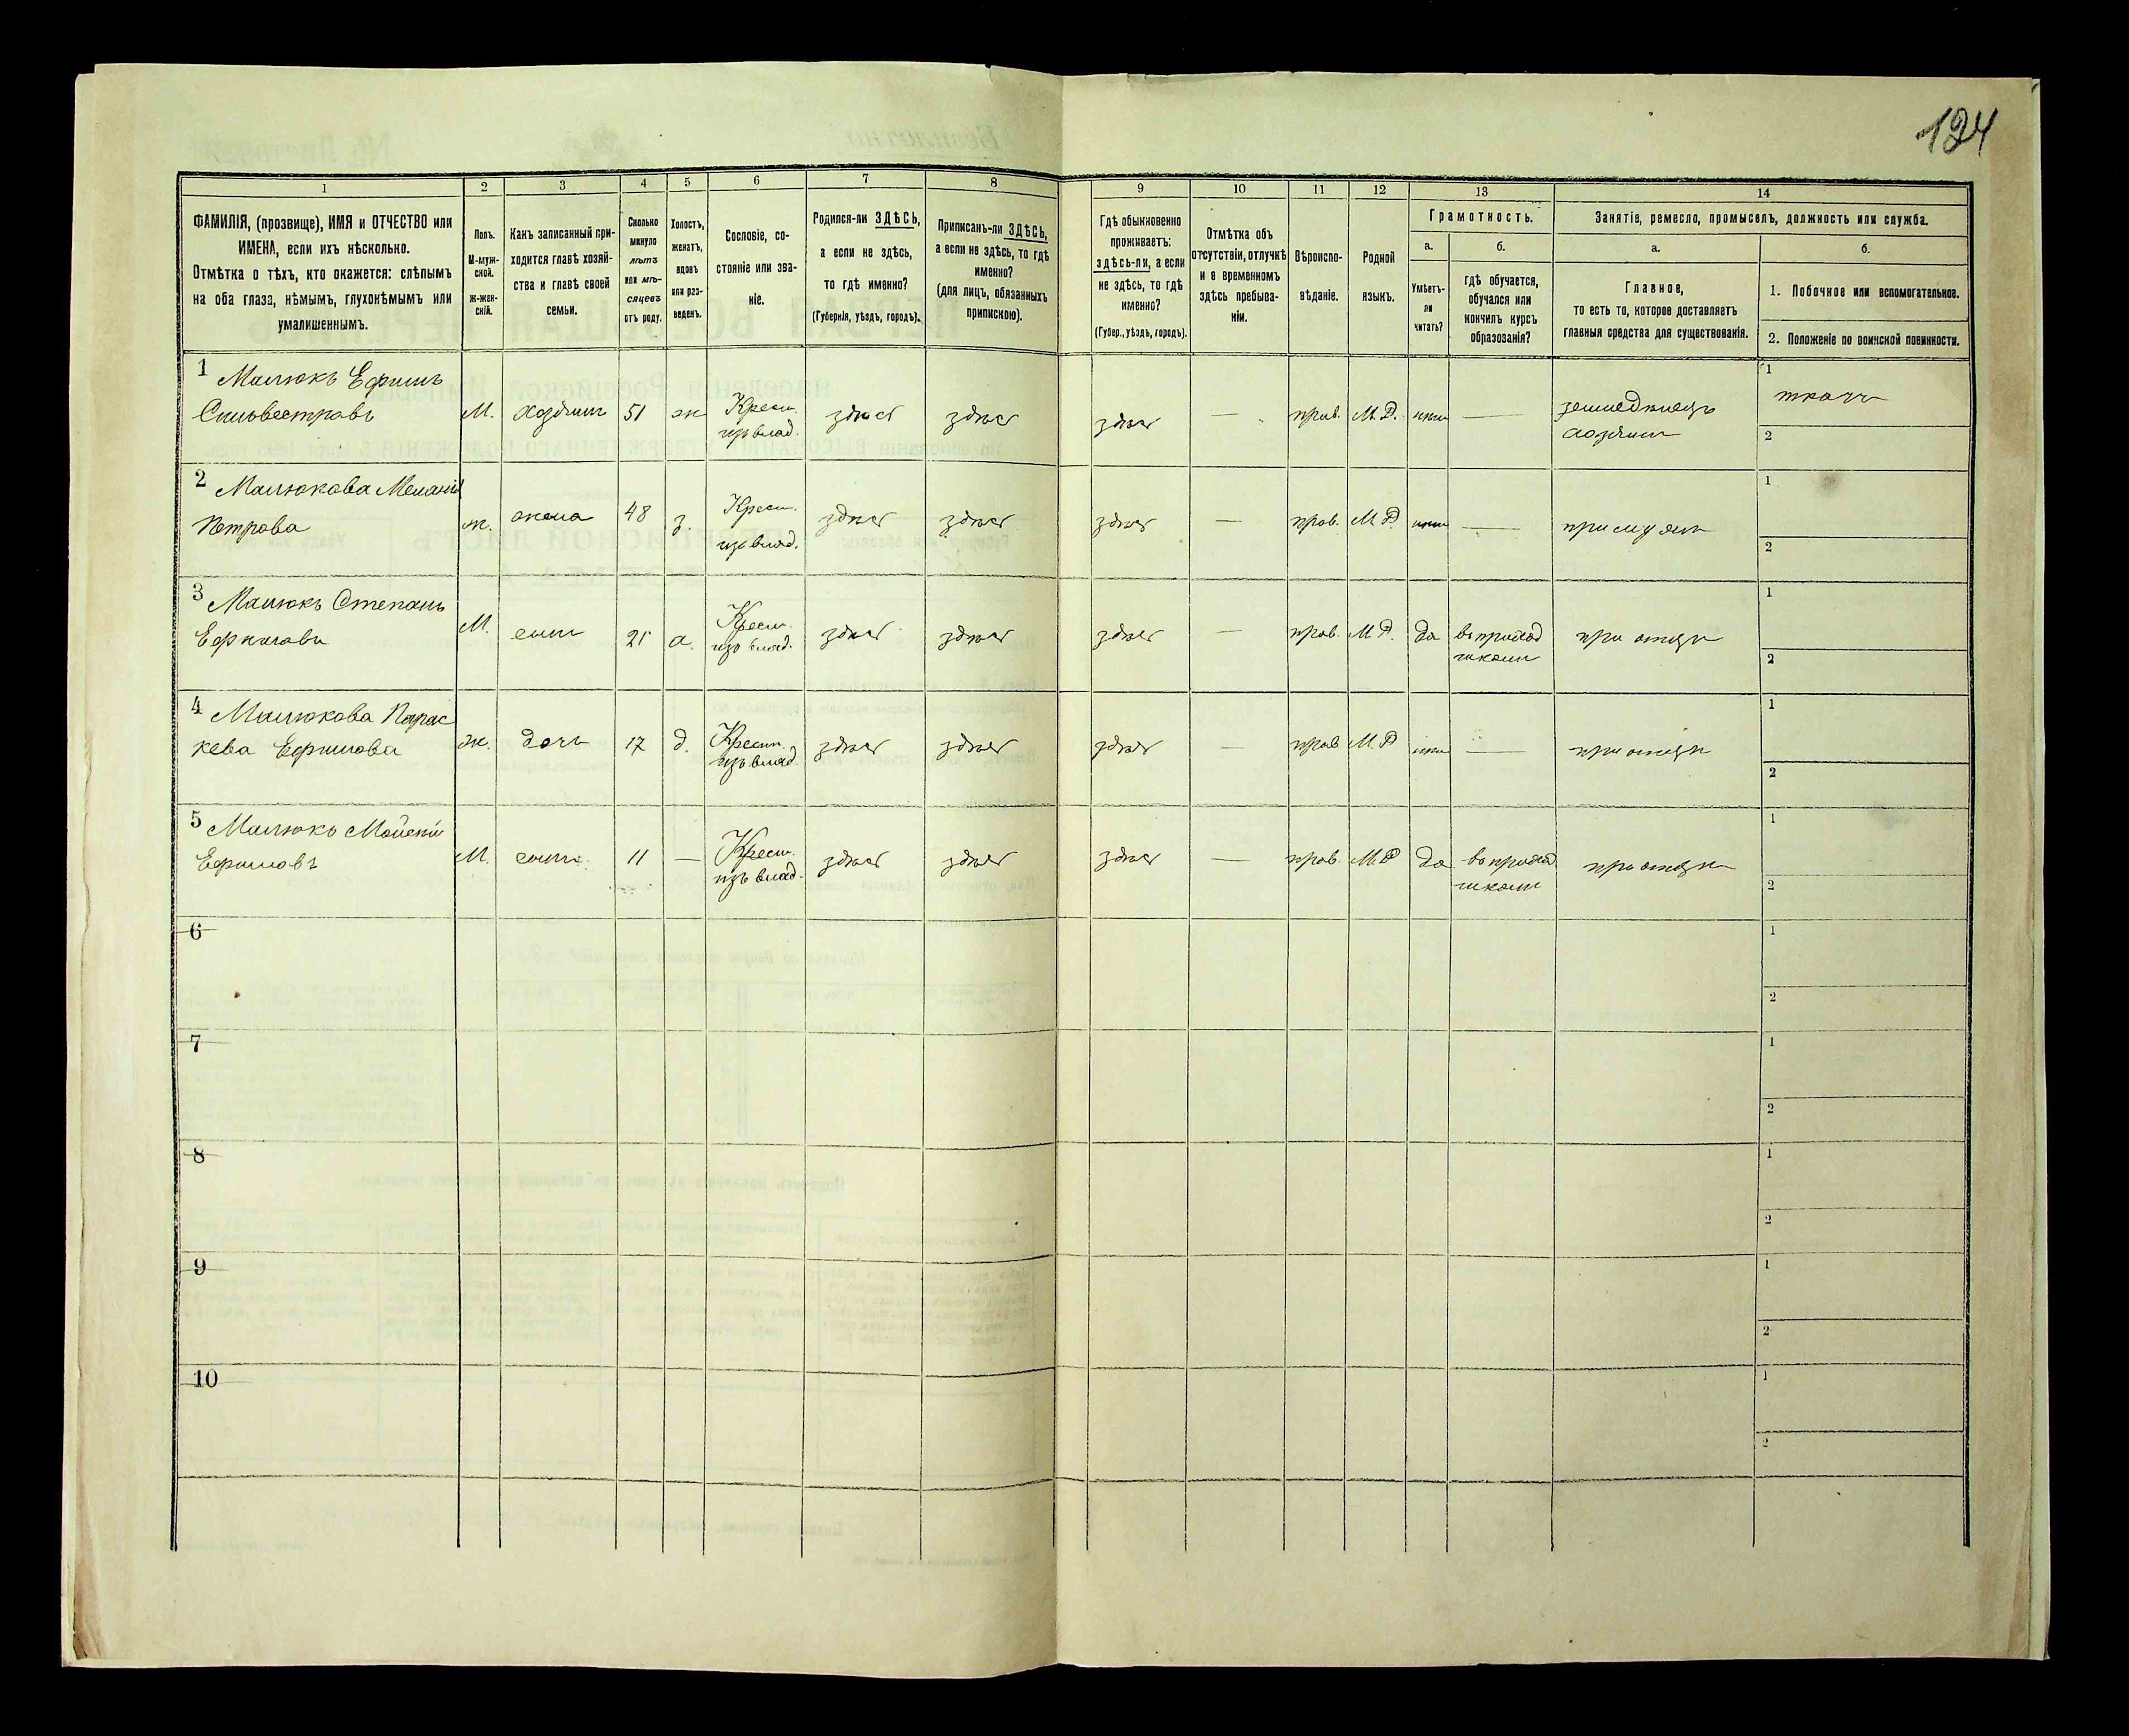 124
1 2 3 4 5 6 7 8 9 10 11 12 13 14
ФАМИЛІЯ, (прозвище), ИМЯ и ОТЧЕСТВО или
ИМЕНА, если ихъ нѣсколько.
Отмѣтка о тѣхъ, кто окажется: слѣпымъ
на оба глаза, нѣмымъ, глухонѣмымъ или
умалишеннымъ.
Полъ.
М-муж-
ской.
ж-жен-
скій.
Какъ записанный при-
ходится главѣ хозяй-
ства и главѣ своей
семьи.
Сколько
минуло
лѣтъ
или мѣ-
сяцевъ
отъ роду.
Холостъ,
женатъ,
вдовъ
или раз-
веденъ.
Сословіе, со-
стояніе или зва-
ніе.
Родился-ли ЗДѢСЬ,
а если не здѣсь,
то гдѣ именно?
(Губернія, уѣздъ, городъ).
Приписанъ-ли ЗДѢСЬ,
а если не здѣсь, то гдѣ
именно?
(для лицъ, обязанныхъ
припискою).
Гдѣ обыкновенно
проживаетъ:
здѣсь-ли, а если
не здѣсь, то гдѣ
именно?
(Губер., уѣздъ, городъ).
Отмѣтка объ
отсутствіи, отлучкѣ
и о временномъ
здѣсь пребыва-
ніи.
Вѣроиспо-
вѣданіе.
Родной
языкъ.
Грамотность.
а. б.
Умѣетъ-
ли
читать?
гдѣ обучается,
обучался или
кончилъ курсъ
образованія?
Занятіе, ремесло, промыселъ, должность или служба.
а. б.
Главное,
то есть то, которое доставляетъ
главныя средства для существованія.
1. Побочное или вспомогательное.
2. Положеніе по воинской повинности.
1 Малюкъ Ефимъ
Сильвестровъ
М. хозяинъ 51 ж Крест.
изъ влад.
здѣсь здѣсь здѣсь — прав. М.Р. нѣтъ —
земледѣлецъ
хозяинъ
1 ткачъ
2
2 Малюкова Меланія
Петрова
ж. жена 48 з. Крест.
изъ влад.
здѣсь здѣсь здѣсь — прав. М.Р. нѣтъ — при мужѣ
1
2
3 Малюкъ Степанъ
Ефимовъ
М. сынъ 21 х. Крест.
изъ влад.
здѣсь здѣсь здѣсь — прав. М.Р. да въ приход
школѣ
при отцѣ
1
2
4 Малюкова Парас
кева Ефимова
ж. дочь 17 д. Крест.
изъ влад.
здѣсь здѣсь здѣсь — прав М.Р нѣтъ — при отцѣ
1
2
5 Малюкъ Мойсей
Ефимовъ
М. сынъ 11 — Крест.
изъ влад.
здѣсь здѣсь здѣсь — прав. М.Р да въ приход
школѣ
при отцѣ
1
2
6
1
2
7
1
2
8
1
2
9
1
2
10
1
2